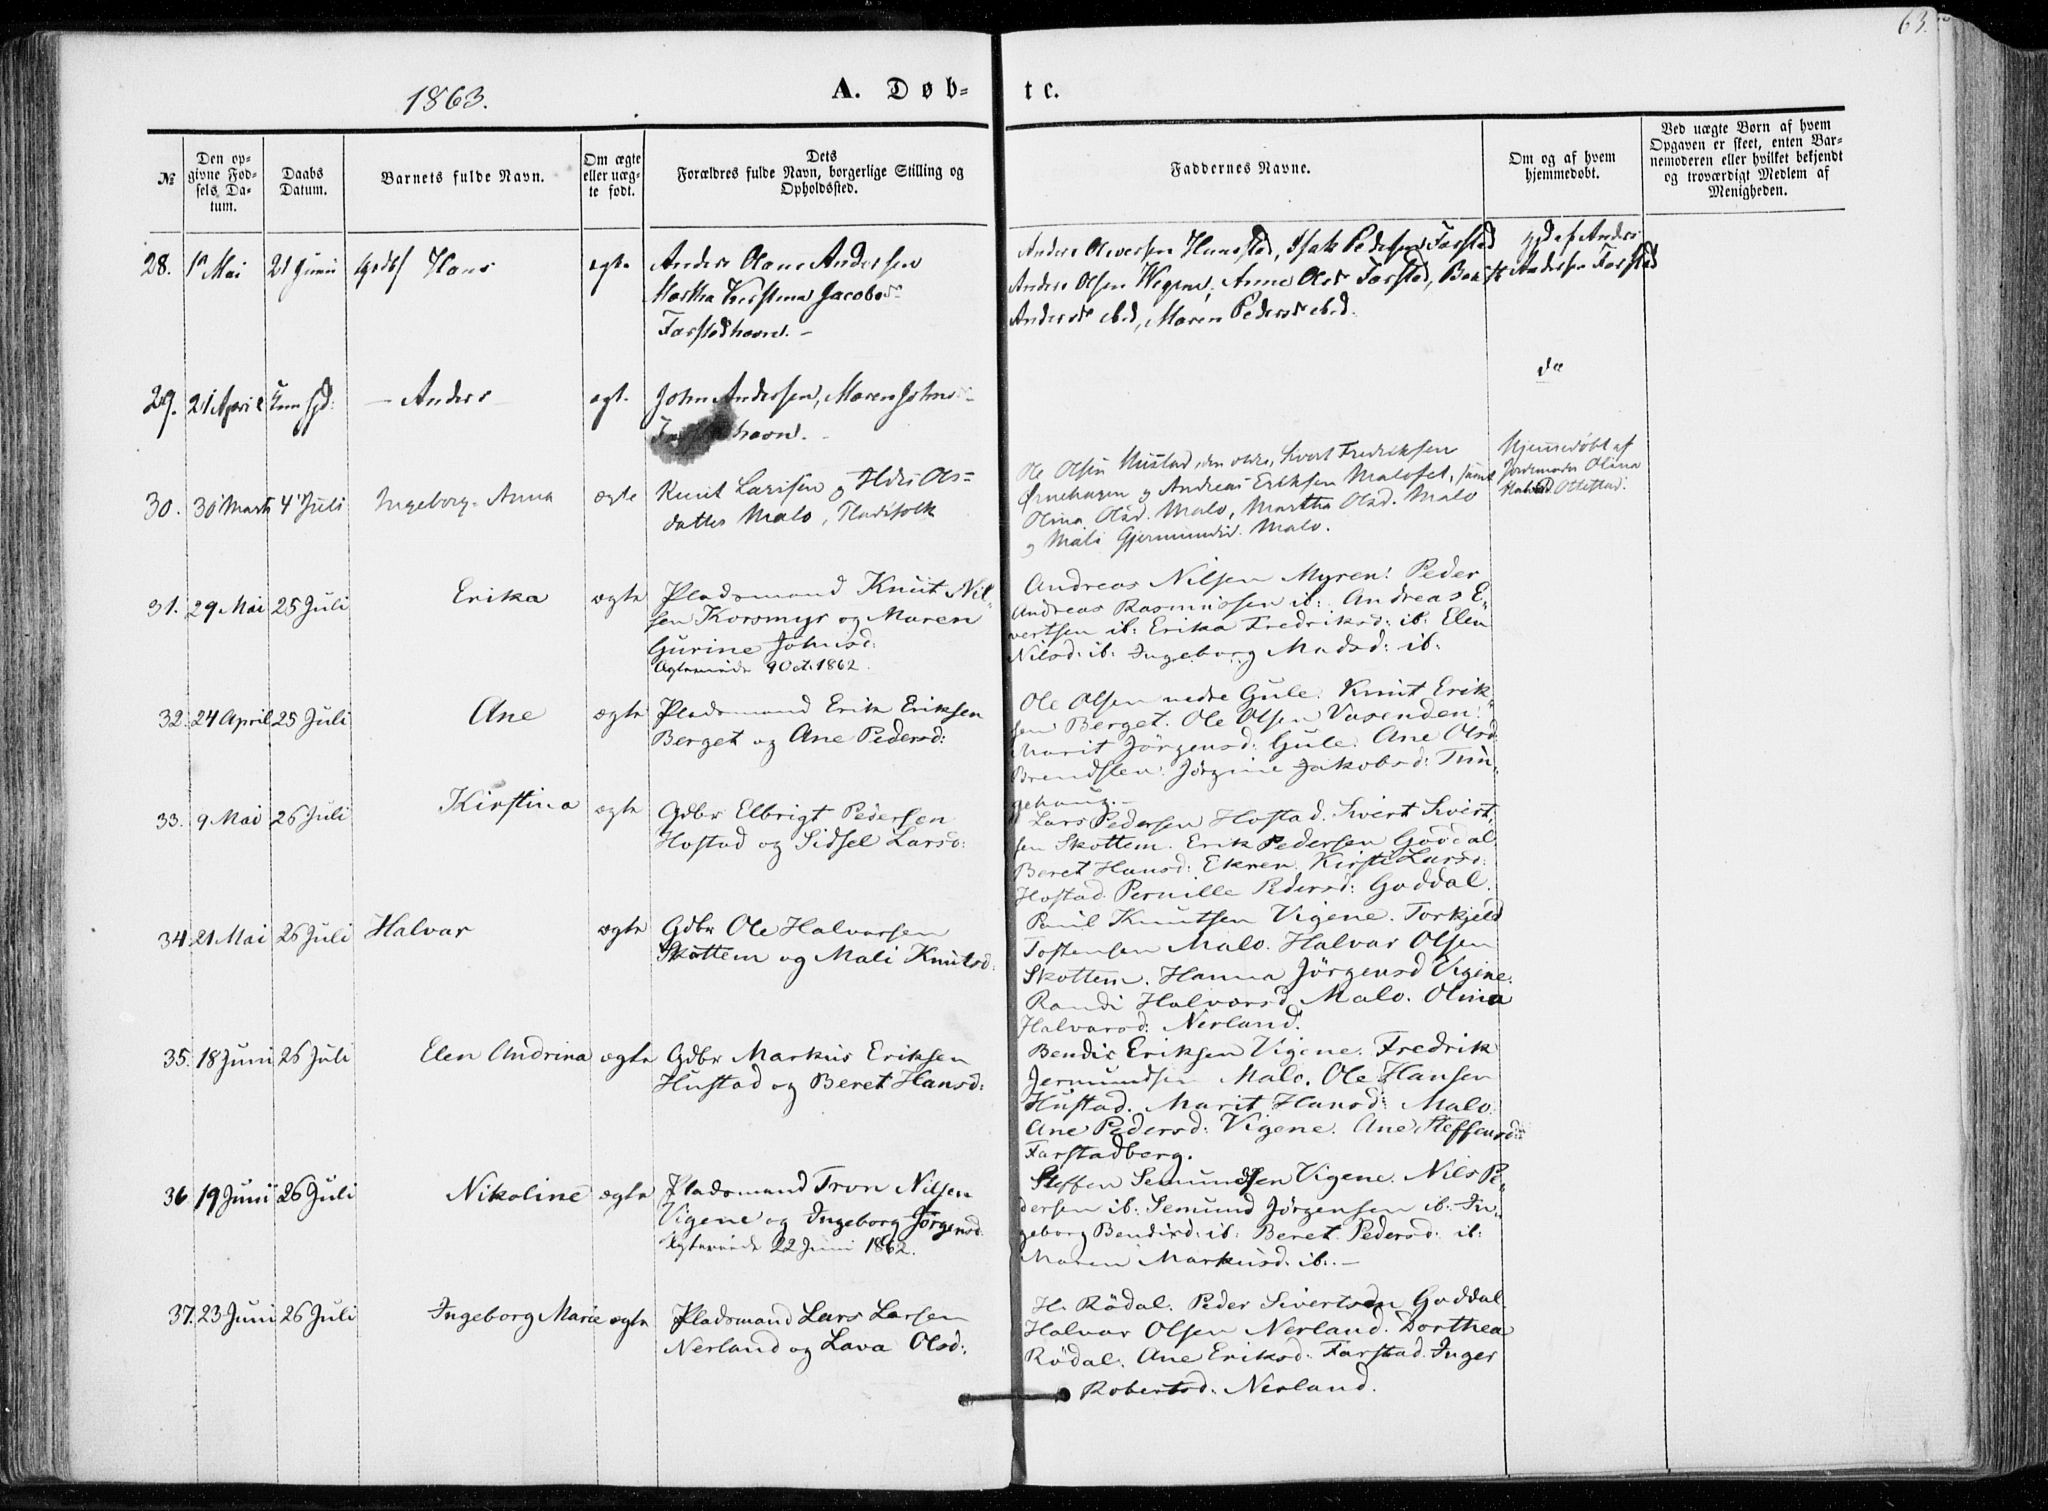 63.
1863.
A. Døb-
te.
№
Den op-
givne Fød-
sels Da-
tum.
Daabs
Datum.
Barnets fulde Navn.
Om ægte
eller uæg-
te født.
Dets
Forældres fulde Navn, borgerlige Stilling og
Opholdssted.
Faddernes Navne.
Om og af hvem
hjemmedøbt.
Ved uægte Børn af hvem
Opgaven er skeet, enten Bar-
nemoderen eller hvilket bekjendt
og troværdigt Medlem af
Menigheden.
28. 1 Mai 21 Juni Hans ægte
Anders Olaus Andersen
Martha Kirstina Jacobsd
Farstadhavn. –
Anders Olsen Wegene, Anne Olsd Farstad,
Andersd ibid, Maren Pedersd ibid.
af Anders
Andersen Farstad
29. 21 April – Anders – ægt.
John Andersen, Maren Johnsd
havn. –
do
30. 30 Marts 4 Juli Ingeborg Anna ægte
Knut Larssen og Ols=
datter Malo,
Ole Olsen Hustad den ældre, Sivert Fredriksen
og Andreas Eriksen Malofet, samt
Olina Olsd. Malo, Martha Olsd. Malo
og Mali Gjermundsd. Malo.
Hjemmedøbt af
Jordemoder Olina
Halvd. Ottestad.
31. 29 Mai 25 Juli Erika ægte
Pladsmand Knut Nil-
sen Korsmyr og Maren
Gurine Johnsd:
Ægteviede 9 Oct. 1862.
Andreas Nilsen Myren: Peder
Andreas Rasmussen ib: Andreas E-
vertsen ib: Erika Fredriksd: ib: Elen
Nilsd: ib: Ingeborg Madsd: ib:
32. 24 April 25 Juli Ane ægte
Pladsmand Erik Eriksen
Berget og Ane Pedersd:
Ole Olsen nedre Gule. Knut Erik-
sen Berget. Ole Olsen Vasenden.
Marit Jörgensd: Gule. Ane Olsd
Brendslen. Jörgine Jakobsd: Tun-
gehaug. –
33. 9 Mai 26 Juli Kirstina ægte
Gdbr Elbrigt Pedersen
Hostad og Sidsel Larsd:
Lars Pedersen Hostad. Sivert Sivert-
sen Skottem. Erik Pedersen Goddal
Beret Hansd: Ekren. Kirsti Larsd:
Hostad. Pernille Pedersd: Goddal.
34. 21 Mai 26 Juli Halvar ægte
Gdbr Ole Halvarsen
Skottem og Mali Knutsd:
Paul Knutsen Vigene. Torkjeld
Tostensen Malo. Halvar Olsen
Skottem. Hanna Jörgensd Vigene.
Randi Halvarsd Malo. Olina
Halvarsd: Nerland.
35. 18 Juni 26 Juli Elen Andrina ægte
Gdbr Markus Eriksen
Hustad og Beret Hansd:
Bendis Eriksen Vigene. Fredrik
Jermundsen Malo. Ole Hansen
Hustad. Marit Hansd: Malo.
Ane Pedersd: Vigene. Ane Steffensd:
Farstadberg.
36 19 Juni 26 Juli Nikoline ægte
Pladsmand Tron Nilsen
Vigene og Ingeborg Jörgensd.
Ægteviede 22 Juni 1862.
Steffen Semundsen Vigene. Nils Pe-
dersen ib: Semund Jörgensen ib: In-
geborg Bendisd: ib: Beret Pedersd: ib:
Maren Markusd: ib: –
37. 23 Juni 26 Juli Ingeborg Marie ægte
Pladsmand Lars Larsen
Nerland og Lava Olsd:
H. Rödal. Peder Sivertsen Goddal.
Halvar Olsen Nerland. Dorthea
Rödal. Ane Eriksd: Farstad. Inger
Robertsd: Nerland.